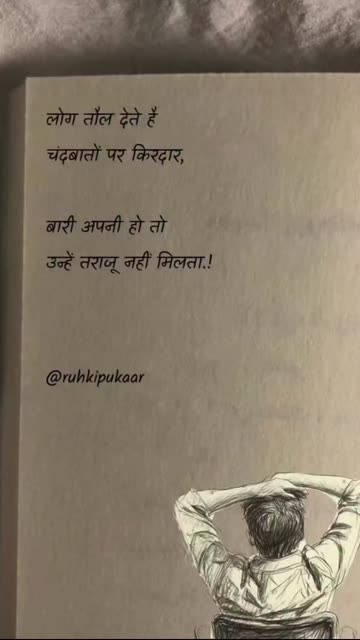 लोग तौल देते है
चंदबातों पर किरदार,
बारी अपनी हो तो
उन्हें तराजू नहीं मिलता.!
@ruhkipukaar